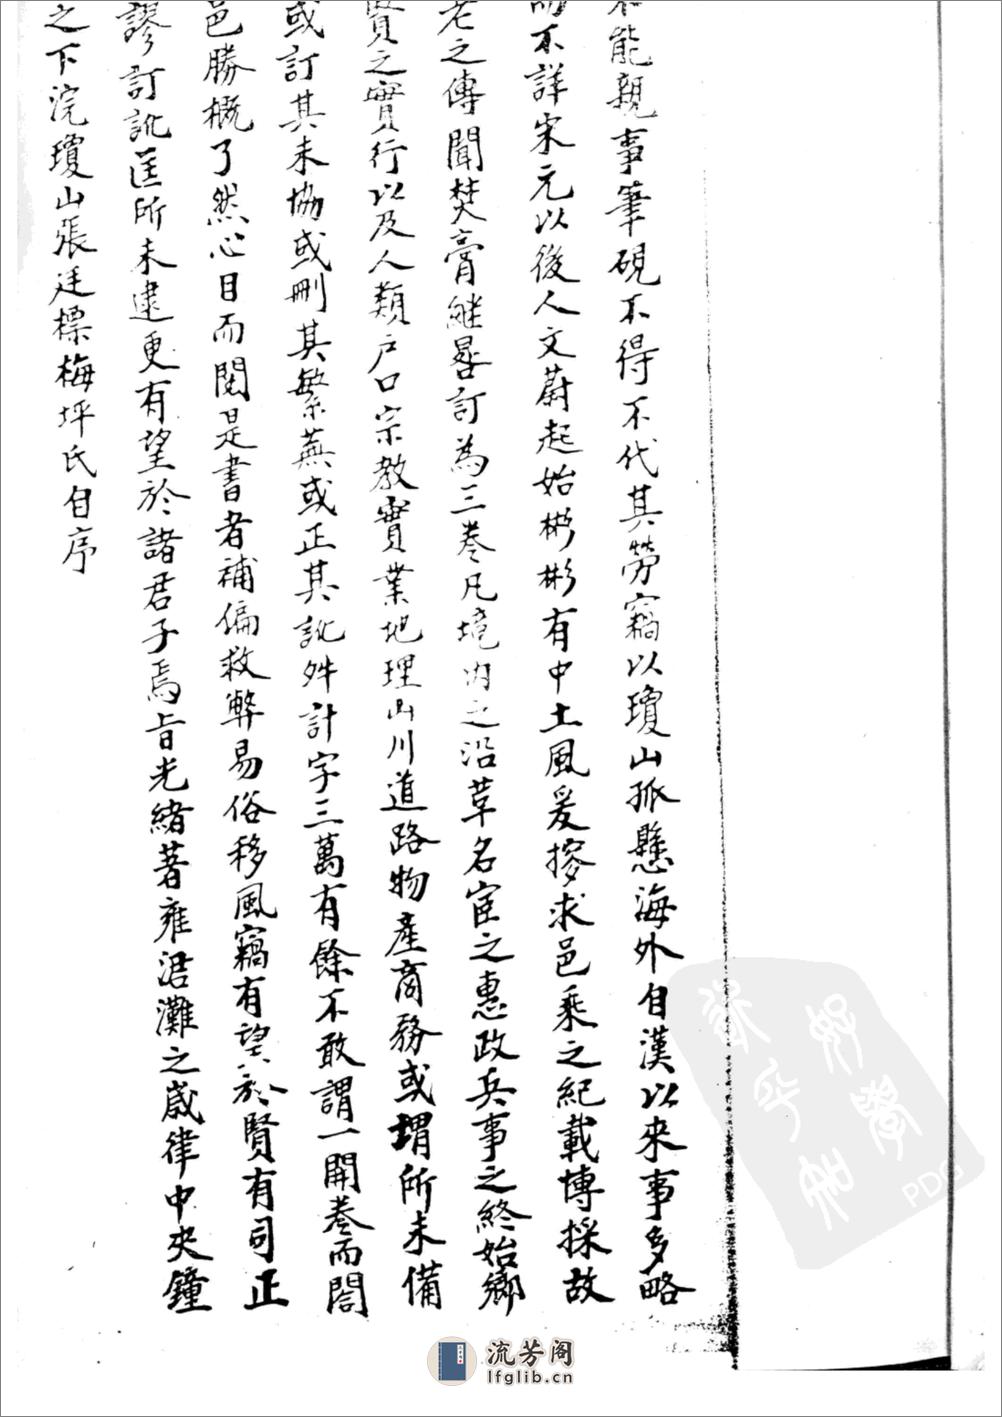 能親事筆硯不得不代其勞竊以瓊山孤懸海外自漢以來事多略
而不詳宋元以後人文蔚起始彬彬有中土風爰搜求邑乘之紀載博採故
老之傳聞焚膏繼晷訂為三卷凡境內之沿革名宦之惠政兵事之終始鄉
賢之實行以及人類戶口宗教實業地理山川道路物產商務或增所未備
或訂其未協或刪其繁蕪或正其訛舛計字三萬有餘不敢謂一開卷而閤
邑勝概了然心目而閱是書者補偏救弊易俗移風竊有望於賢有司正
謬訂訛匡所未逮更有望於諸君子焉旨光緒著雍涒灘之歲律中夾鐘
之下浣瓊山張廷標梅坪氏自序
好學
PDG
流芳阁
lfglib.cn